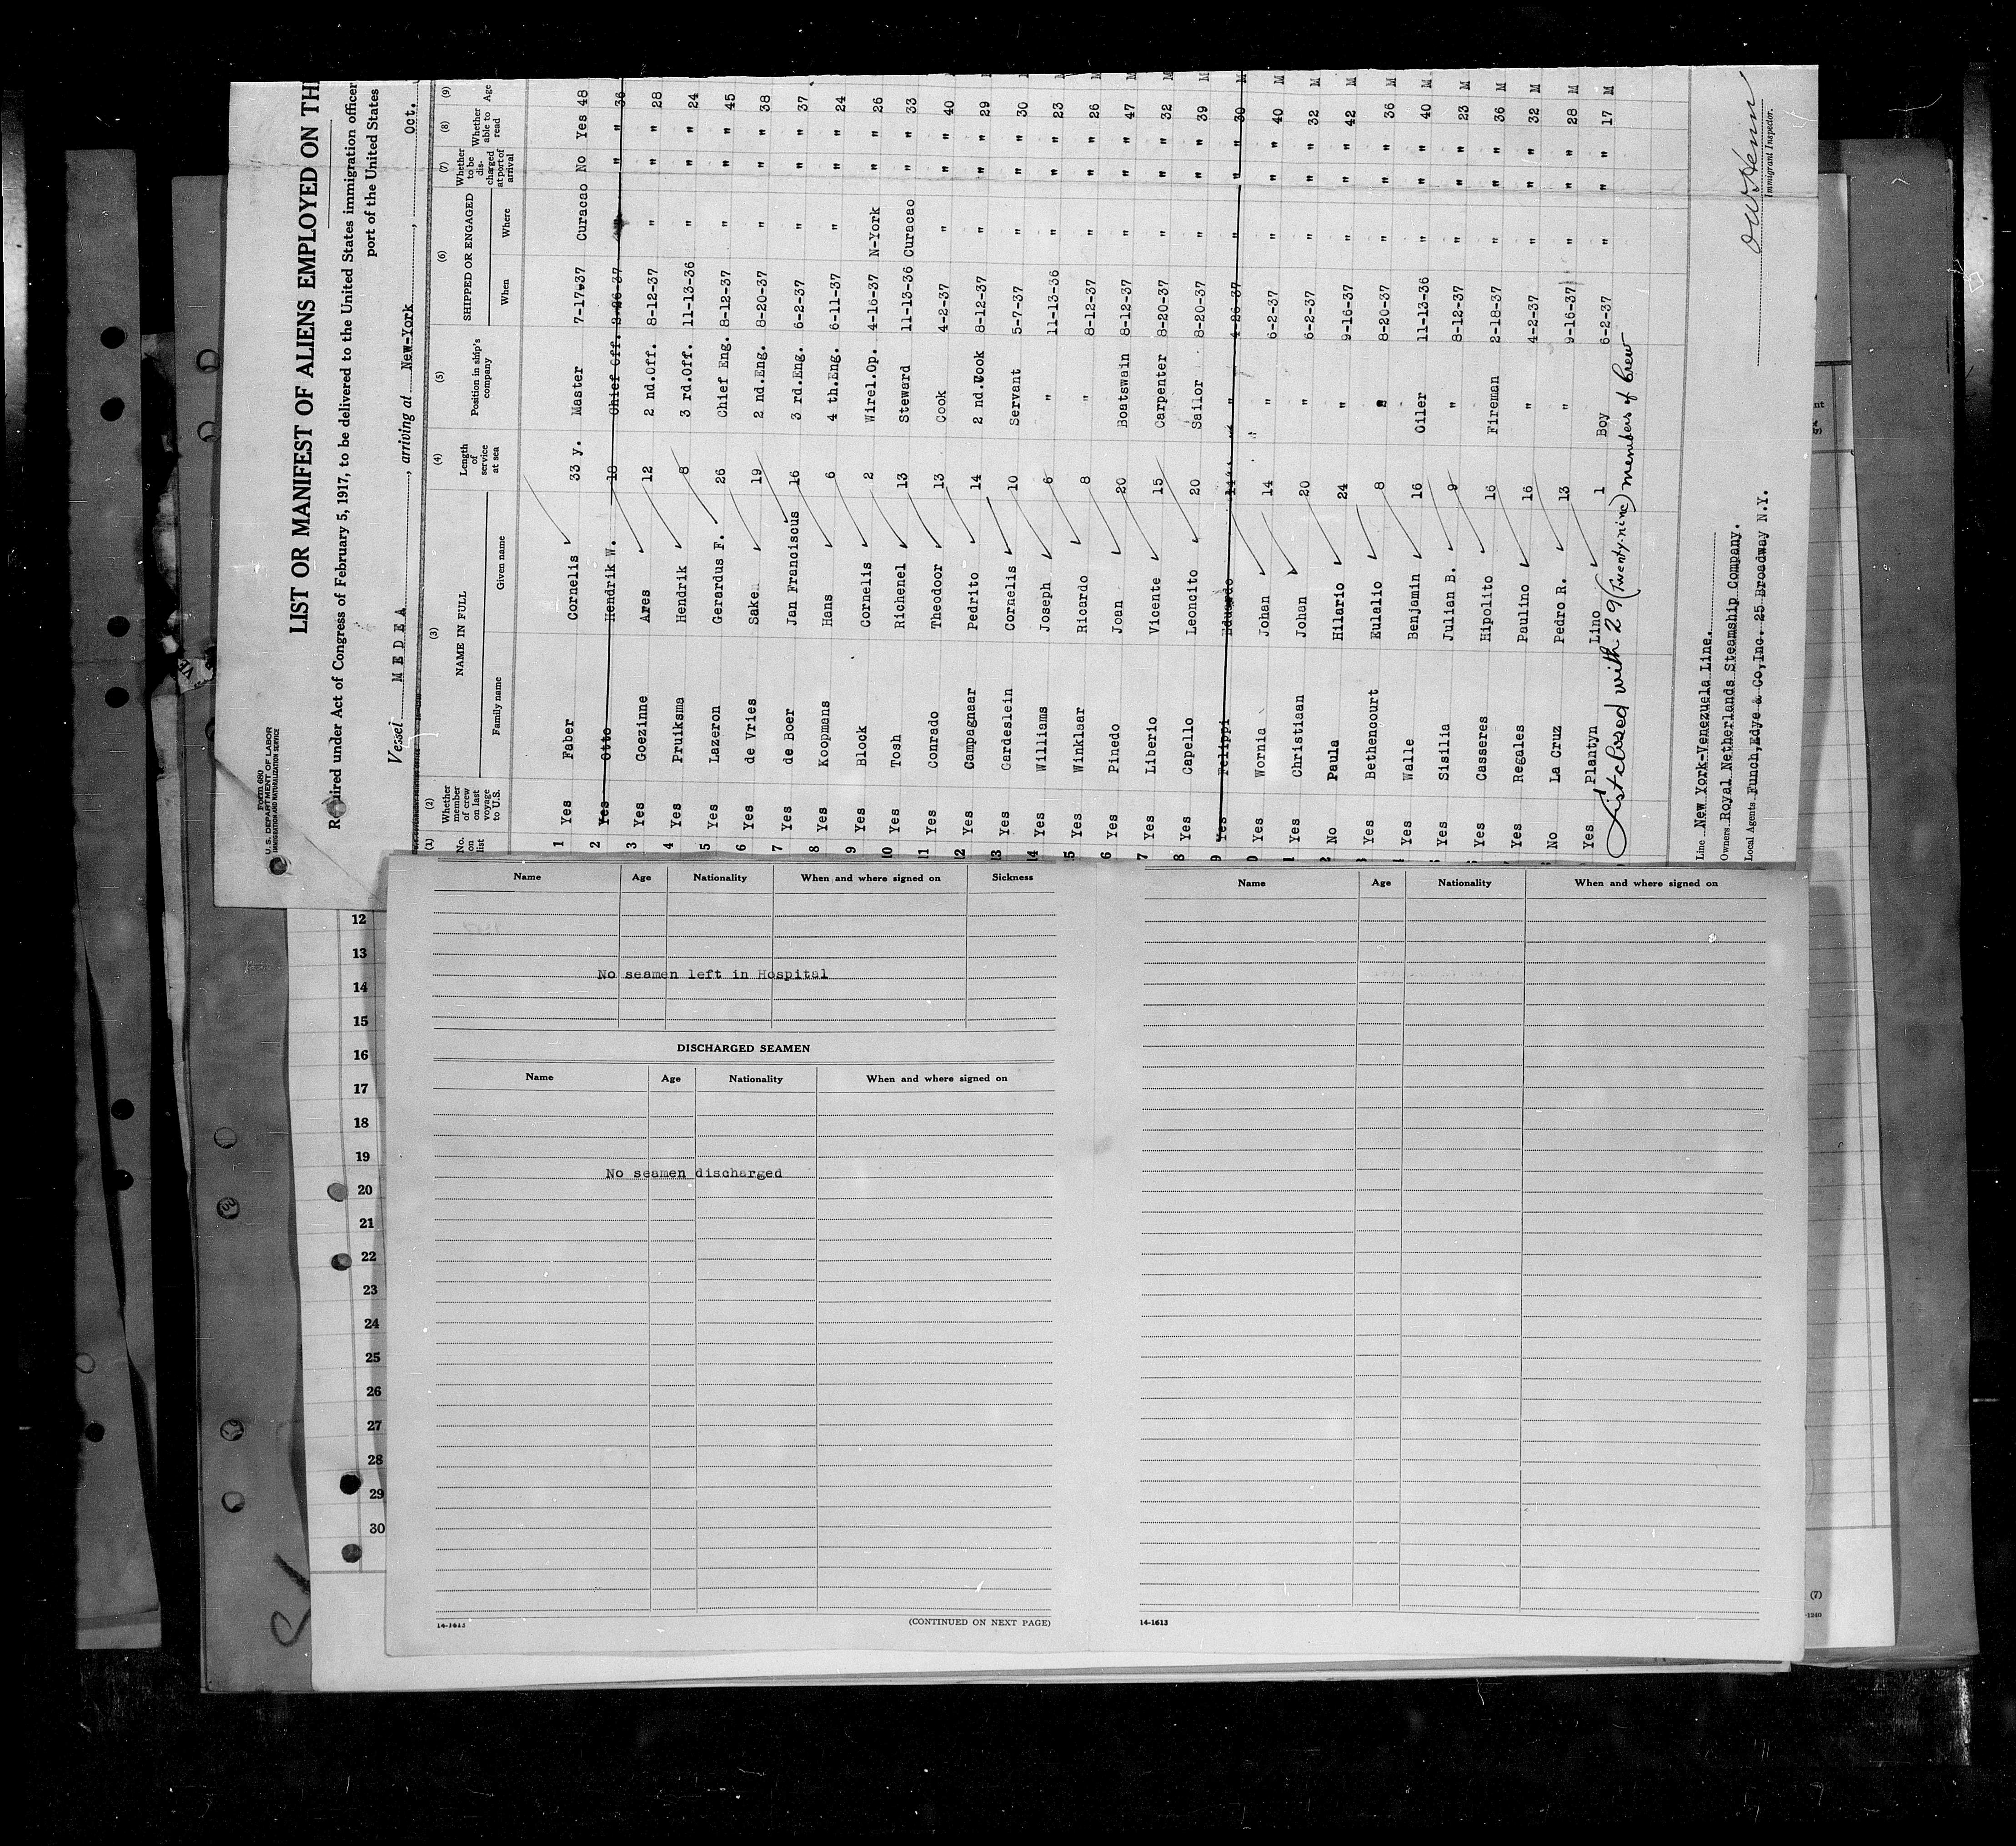 Form 680
U. S. DEPARTMENT OF LABOR
IMMIGRATION AND NATURALIZATION SERVICE
LIST OR MANIFEST OF ALIENS EMPLOYED ON TH
Required under Act of Congress of February 5, 1917, to be delivered to the United States immigration officer
port of the United States
Vessel MEDEA, arriving at New-York, Oct.
(1) (2) (3) (4) (5) (6) (7) (8) (9)
No. on list Whether member of crew on last voyage to U.S. NAME IN FULL Family name Given name Length of service at sea Position in ship's company SHIPPED OR ENGAGED When Where Whether to be discharged at port of arrival Whether able to read Age
1 Yes Faber Cornelis 33 y. Master 7-17-37 Curacao No Yes 48
2 Yes Otto Hendrik W. 18 Chief Off. 3-26-37 " " " 36
3 Yes Goezinne Ares 12 2 nd.Off. 8-12-37 " " " 28
4 Yes Pruiksma Hendrik 8 3 rd.Off. 11-13-36 " " " 24
5 Yes Lazeron Gerardus F. 26 Chief Eng. 8-12-37 " " " 45
6 Yes de Vries Sake 19 2 nd.Eng. 8-20-37 " " " 38
7 Yes de Boer Jan Franciscus 16 3 rd.Eng. 6-2-37 " " " 37
8 Yes Koopmans Hans 6 4 th.Eng. 6-11-37 " " " 24
9 Yes Block Cornelis 2 Wirel.Op. 4-16-37 N-York " " 26
10 Yes Tosh Richenel 13 Steward 11-13-36 Curacao " " 33
11 Yes Conrado Theodoor 13 Cook 4-2-37 " " " 40
12 Yes Campagnaar Pedrito 14 2 nd.Cook 8-12-37 " " " 29
13 Yes Gardeslein Cornelis 10 Servant 5-7-37 " " " 30 M
14 Yes Williams Joseph 6 " 11-13-36 " " " 23 M
5 Yes Winklaar Ricardo 8 " 8-12-37 " " " 26 M
6 Yes Pinedo Joan 20 Boatswain 8-12-37 " " " 47 M
7 Yes Liberio Vicente 15 Carpenter 8-20-37 " " " 32 M
8 Yes Capello Leoncito 20 Sailor 8-20-37 " " " 39 M
9 Yes Felippi Eduardo 14 " 4-26-37 " " " 30 M
0 Yes Wornia Johan 14 " 6-2-37 " " " 40 M
1 Yes Christiaan Johan 20 " 6-2-37 " " " 32 M
2 No Paula Hilario 24 " 9-16-37 " " " 42 M
Yes Bethencourt Eulalio 8 " 8-20-37 " " " 36 M
Yes Walle Benjamin 16 Oiler 11-13-36 " " " 40 M
Yes Sisilia Julian B. 9 " 8-12-37 " " " 23 M
Yes Casseres Hipolito 16 Fireman 2-18-37 " " " 36 M
Yes Regales Paulino 16 " 4-2-37 " " " 32 M
No La Cruz Pedro R. 13 " 9-16-37 " " " 28 M
Yes Plantyn Lino 1 Boy 6-2-37 " " " 17 M
List closed with 29 (twenty-nine) members of Crew
Line New York-Venezuela Line.
Owners Royal Netherlands Steamship Company.
Local Agents Funch,Edye & Co,Inc. 25 Broadway N.Y.
Immigrant Inspector.
12
13
14
15
16
17
18
19
20
21
22
23
24
25
26
27
28
29
30
Name Age Nationality When and where signed on Sickness
No seamen left in Hospital
DISCHARGED SEAMEN
Name Age Nationality When and where signed on
No seamen discharged
14-1613
(CONTINUED ON NEXT PAGE)
Name Age Nationality When and where signed on
14-1613
(7)
-1240